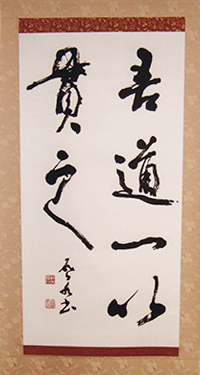 吾道一以
貫之